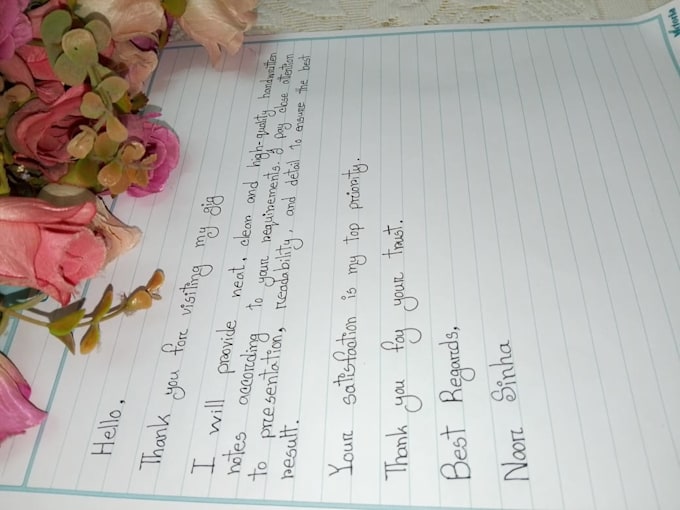 Hello,
Thank you fore visiting my gig
I will provide neat, clean and high-quality handwritten
notes according to your requirements. I pay close attention
to presentation, readability, and detail to ensure the best
result.
Your satisfaction is my top priority.
Thank you foy your trust.
Best Regards,
Noor Sinha